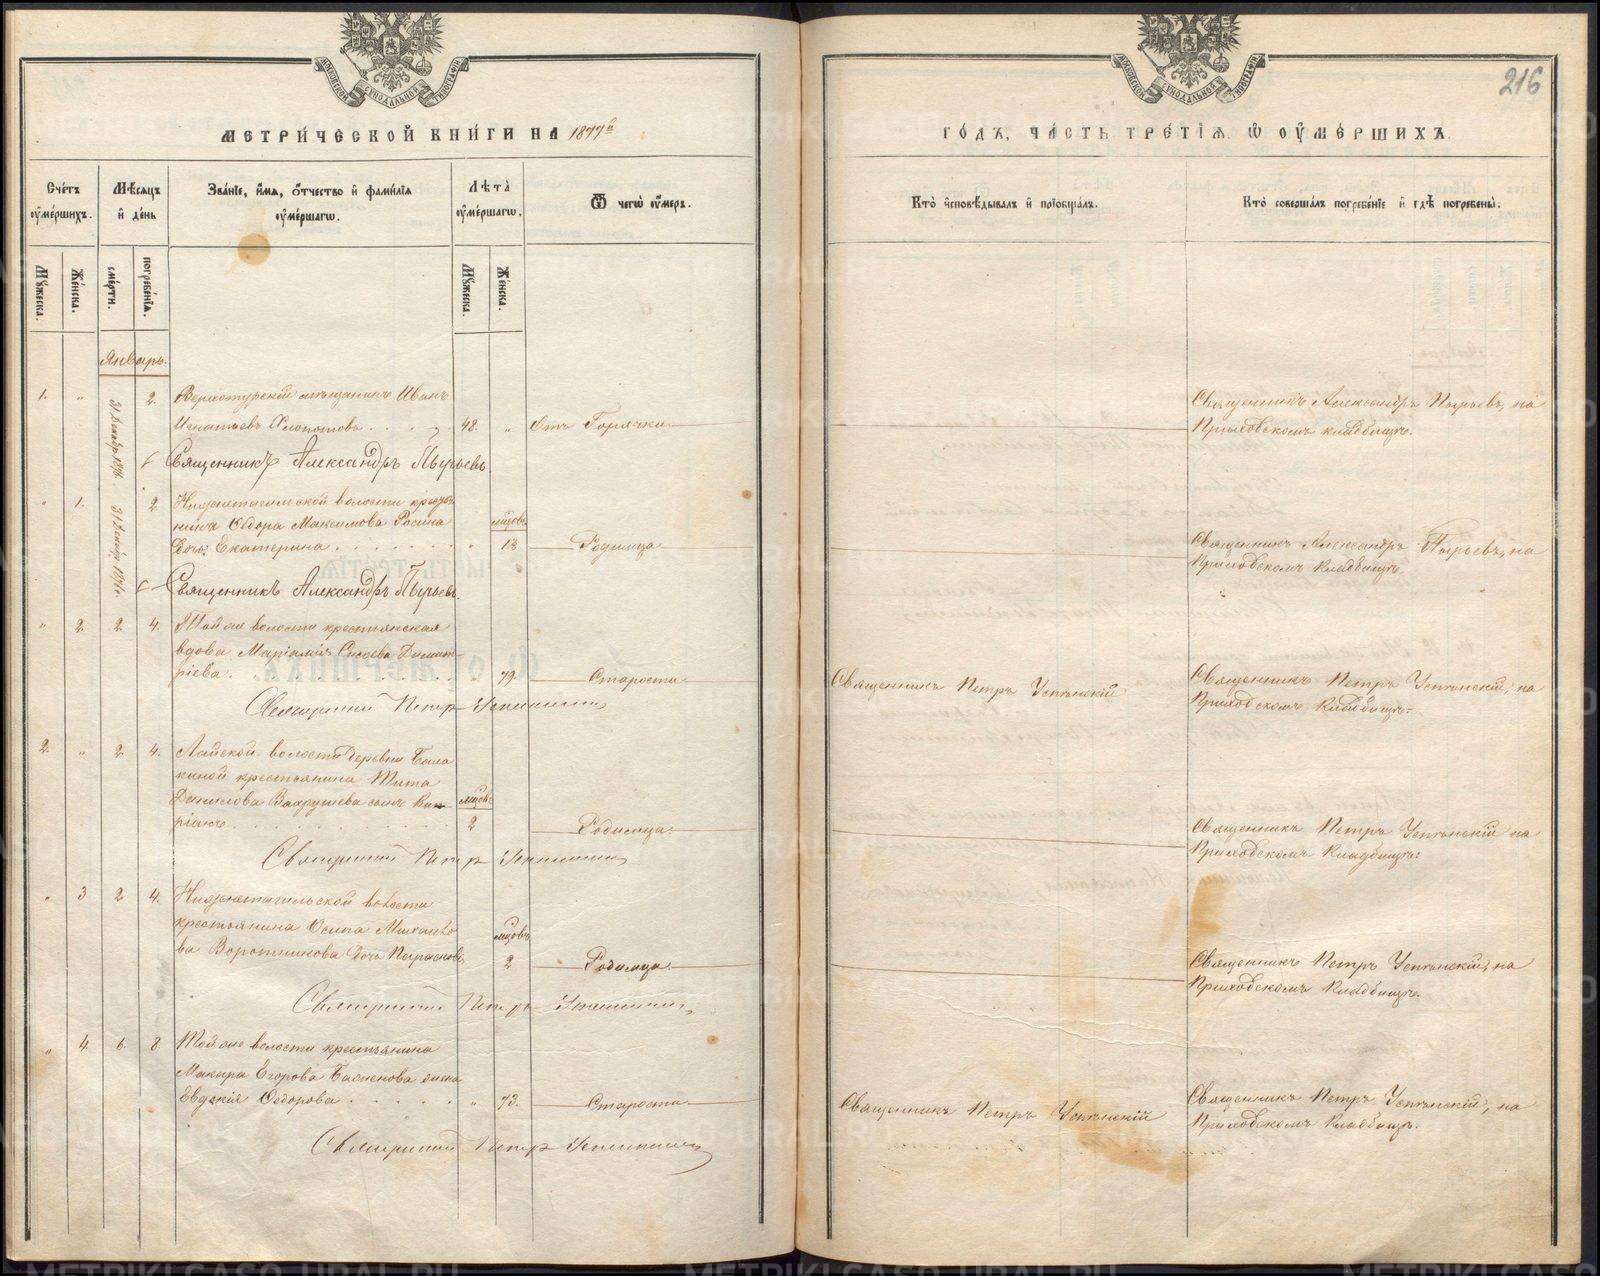 МЕТРИ́ЧЕСКОЙ КНИ́ГИ НА 1877й
Сче́тъ ᲂу҆ме́ршихъ.
Мѣ́сяцъ и҆ де́нь
Зва́нїе, и҆́мя, ѻ҆́тчество и҆ фами́лїя ᲂу҆ме́ршагѡ.
Лѣ́та ᲂу҆ме́ршагѡ.
Ѿ чегѡ̀ ᲂу҆́меръ.
Мꙋ́жеска.
Же́нска.
сме́рти.
погребе́нїя.
Мꙋ́жеска.
Же́нска.
Январь.
1. „ 31 Декабр. 1876. 2. Верхотурскій мѣщанинъ Иванъ
Игнатьевъ Хлопотовъ . . . . 48. „ Отъ Горячки.
Священникъ Александръ Пырьевъ
„ 1. 31 Декабр. 1876 г. 2. Нижнетагильской волости крестья-
нина Ѳедора Максимова Росина мѣсов.
дочь Екатерина . . . . . . „ 1½ Родимца
Священникъ Александръ Пырьевъ.
„ 2. 2. 4. Той же волости крестьянская
вдова Маріамія Сысоева Димит-
ріева. . . . . . 79. Старости
Священникъ Петръ Успенскій
2. „ 2. 4. Лайской волости деревни Бала
киной крестьянина Тита
Данилова Вахрушева сынъ Ки- мѣсов.
ріакъ . . . . . 2 Родимца.
Священникъ Петръ Успенскій
„ 3 2 4. Нижнетагильской волости
крестьянина Осипа Михайло
ва Воротникова дочь Парасковья мѣсов. 2 Родимца.
Священникъ Петръ Успенскій
„ 4. 6. 8. Той же волости крестьянина
Макара Егорова жена
Евдокія Ѳедорова . . . . . „ 73. Старости
Священникъ Петръ Успенскій
216
ГО́ДЪ, ЧА́СТЬ ТРЕ́ТЇЯ, Ѽ ОУ҆МЕ́РШИХЪ.
Кто̀ и҆сповѣ́дывалъ и҆ прїѡбща́лъ.
Кто̀ соверша́лъ погребе́нїе и҆ гдѣ̀ погребены̀.
Священникъ Александръ Пырьевъ, на
Приховскомъ кладбищѣ.
Священникъ Александръ Пырьевъ, на
Приховскомъ кладбищѣ
Священникъ Петръ Успѣнскій
Священникъ Петръ Успѣнскій, на
Приходскомъ кладбищѣ.
Священникъ Петръ Успѣнскій на
Приходскомъ кладбищѣ.
Священникъ Петръ Успѣнскій, на
Приходскомъ кладбищѣ.
Священникъ Петръ Успѣнскій
Священникъ Петръ Успѣнскій, на
Приходскомъ кладбищѣ.
METRIKI.CASO-URAL.RU